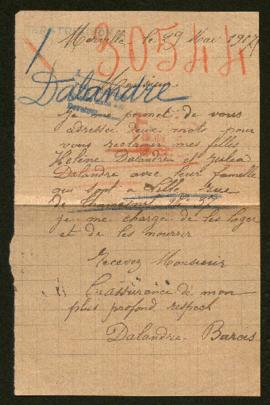 Merville le 29 Mai 1917
30544
Dalandre
Monsieur
Je permet de vous
adresser deux mots pour
vous reclamer mes filles
Helene Dalandre et Julia
Dalandre avec leur famille
qui sont a Lille rue
de
je me charge de les loger
et de les nourrir
Recevez Monsieur
L'assurance de mon
plus profond respect
Dalandre